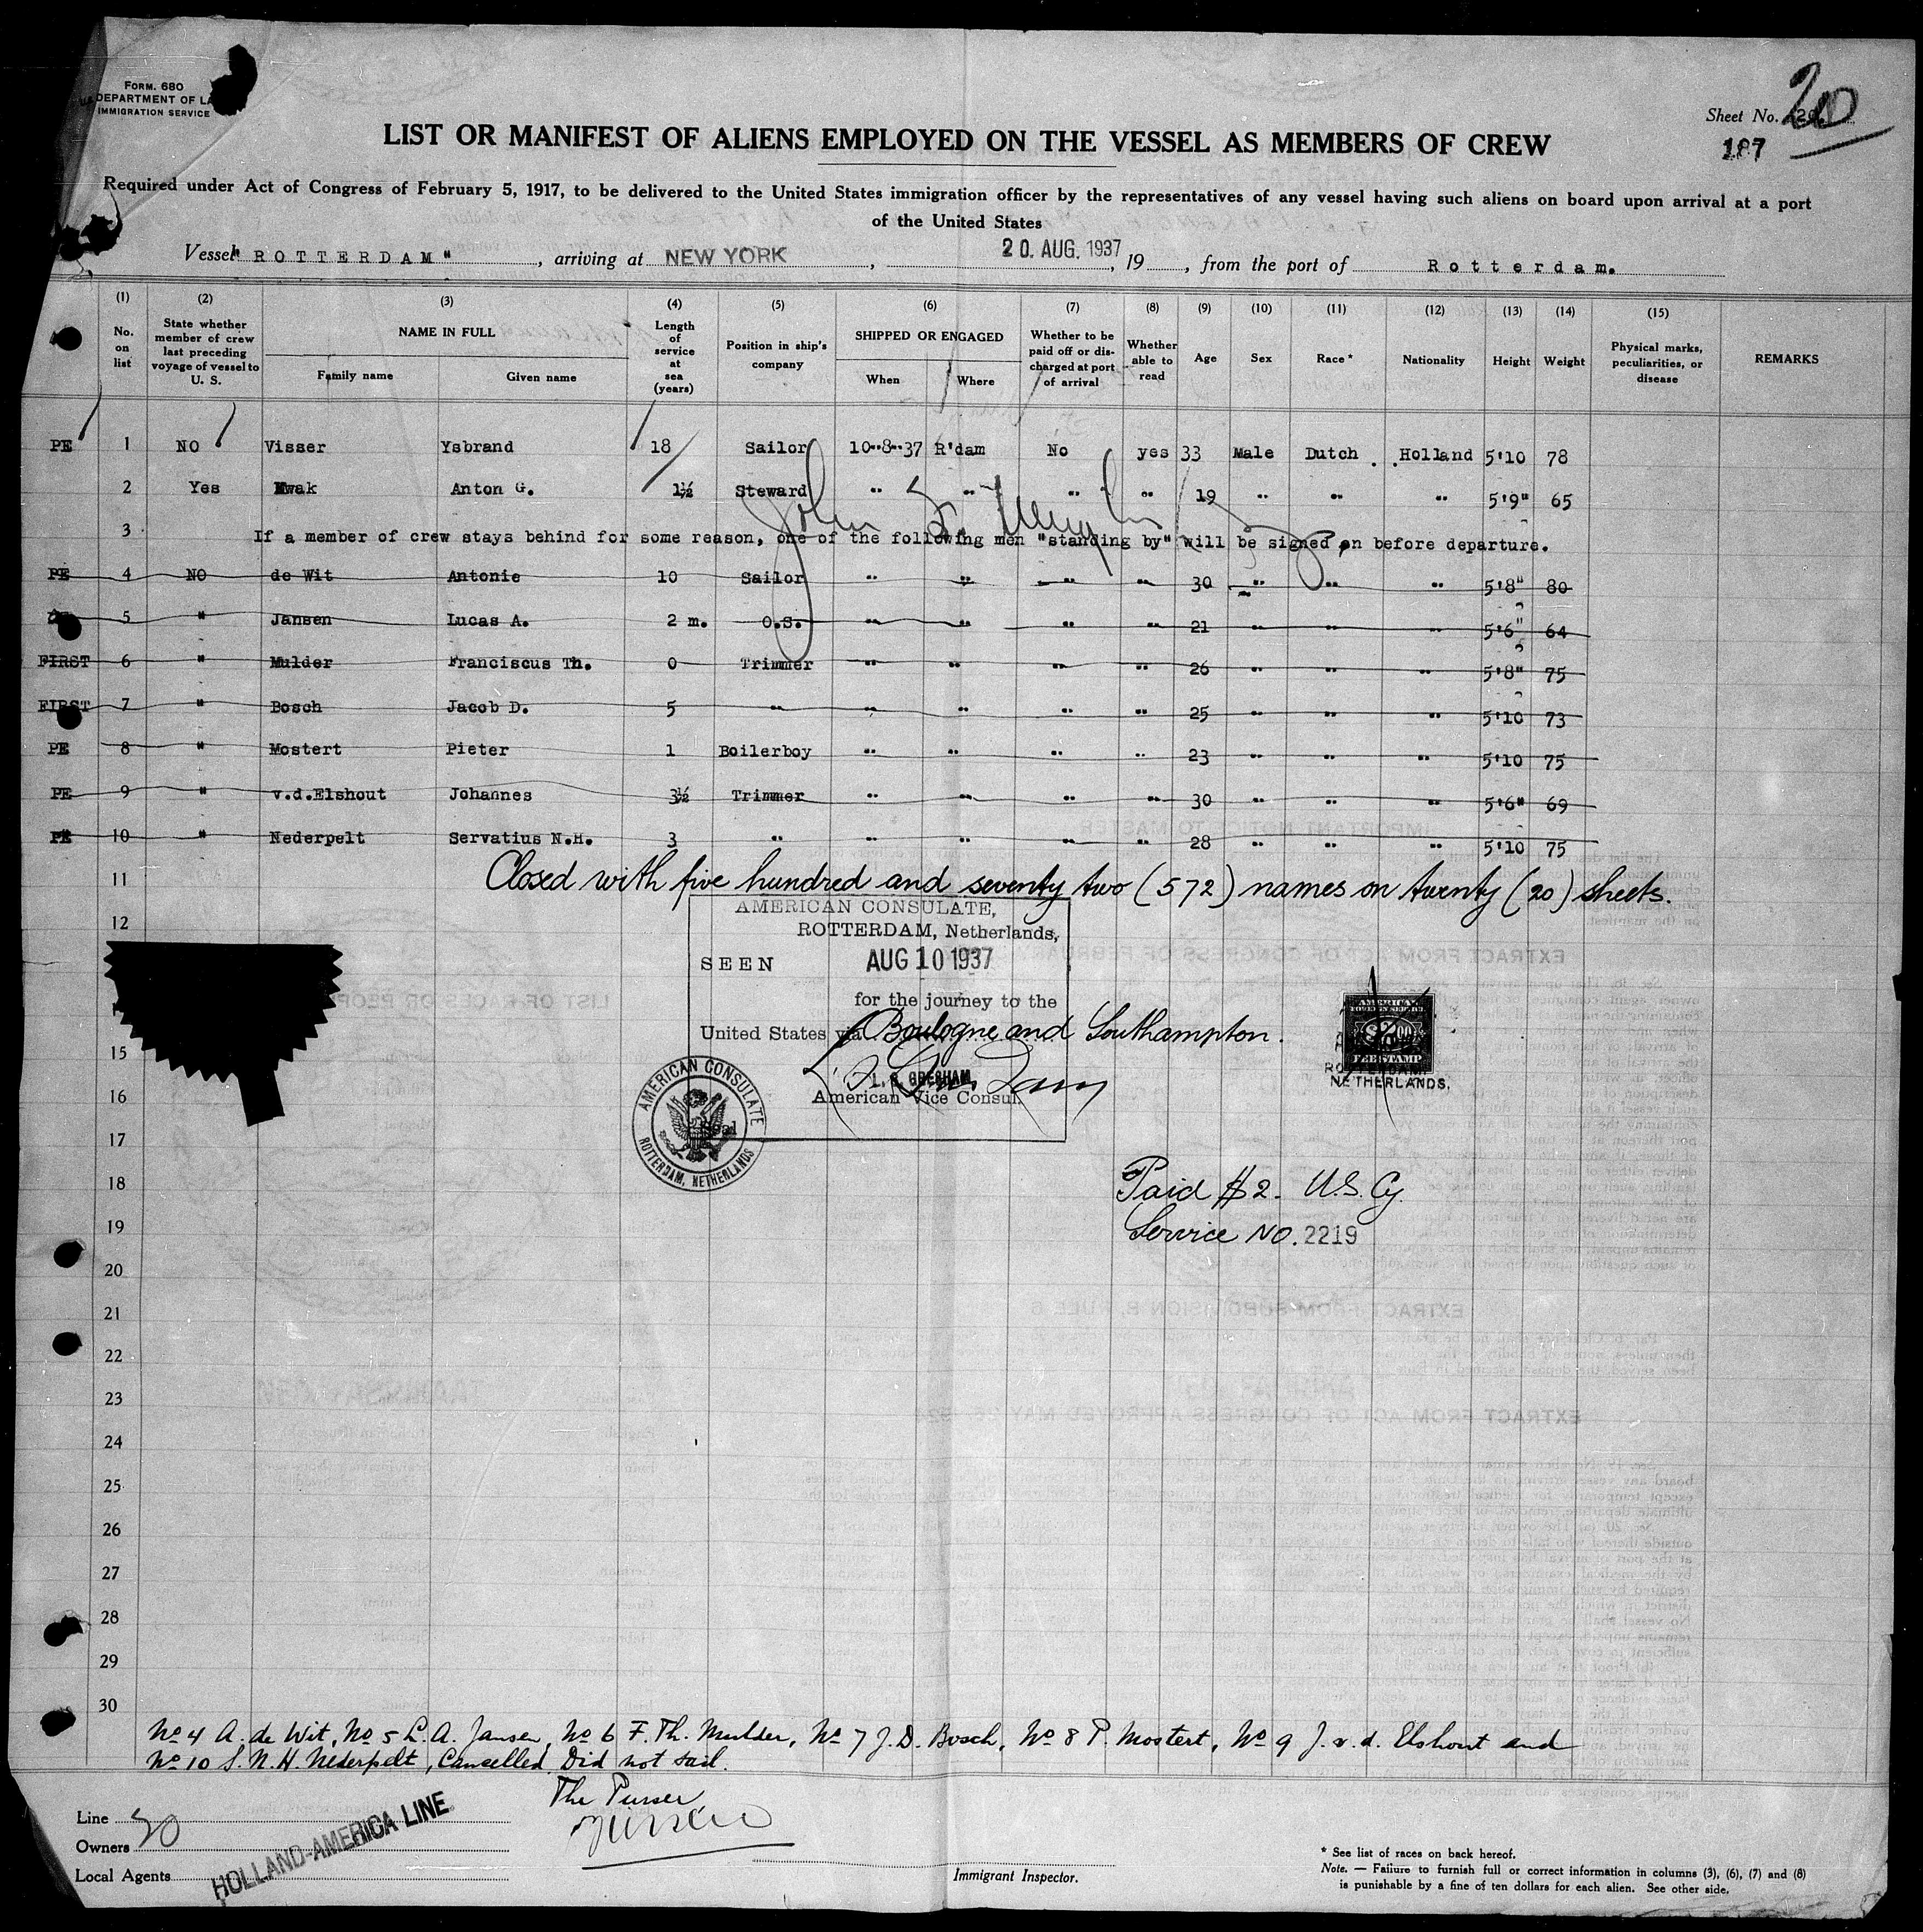 FORM. 680
DEPARTMENT OF LA
IMMIGRATION SERVICE
Sheet No. 20
187
LIST OR MANIFEST OF ALIENS EMPLOYED ON THE VESSEL AS MEMBERS OF CREW
Required under Act of Congress of February 5, 1917, to be delivered to the United States immigration officer by the representatives of any vessel having such aliens on board upon arrival at a port
of the United States
Vessel "ROTTERDAM", arriving at NEW YORK, 20. AUG. 1937, 19, from the port of Rotterdam.
(1) No. on list
(2) State whether member of crew last preceding voyage of vessel to U. S.
(3) NAME IN FULL Family name Given name
(4) Length of service at sea (years)
(5) Position in ship's company
(6) SHIPPED OR ENGAGED When Where
(7) Whether to be paid off or discharged at port of arrival
(8) Whether able to read
(9) Age
(10) Sex
(11) Race*
(12) Nationality
(13) Height
(14) Weight
(15) Physical marks, peculiarities, or disease
REMARKS
PE 1 NO Visser Ysbrand 18 Sailor 10-8-37 R'dam No yes 33 Male Dutch Holland 5'10 78
2 Yes Kwak Anton G. 1½ Steward " " " " 19 " " " 5'9" 65
3 If a member of crew stays behind for some reason, one of the following men "standing by" will be signed on before departure.
PE 4 NO de Wit Antonie 10 Sailor " " " " 30 " " " 5'8" 80
5 " Jansen Lucas A. 2 m. O.S. " " " " 21 " " " 5'6" 64
FIRST 6 " Mulder Franciscus Th. 0 Trimmer " " " " 26 " " " 5'8" 75
FIRST 7 " Bosch Jacob D. 5 " " " " " 25 " " " 5'10 73
PE 8 " Mostert Pieter 1 Boilerboy " " " " 23 " " " 5'10 75
PE 9 " v.d.Elshout Johannes 3½ Trimmer " " " " 30 " " " 5'6" 69
PE 10 " Nederpelt Servatius N.H. 3 " " " " " 28 " " " 5'10 75
11 Closed with five hundred and seventy two (572) names on twenty (20) sheets.
12
AMERICAN CONSULATE,
ROTTERDAM, Netherlands,
SEEN AUG 10 1937
for the journey to the
United States via Boulogne and Southampton.
L. S. GRESHAM
American Vice Consul.
Seal
AMERICAN CONSULATE
ROTTERDAM, NETHERLANDS
AMERICAN
FOREIGN SERVICE
$2.00
FEE STAMP
ROTTERDAM
NETHERLANDS.
15
16
17
18 Paid $2. U.S. Cy.
19 Service NO. 2219
20
21
22
23
24
25
26
27
28
29
30
No 4 A. de Wit, No 5 L. A. Jansen, No 6 F. Th. Mulder, No 7 J. D. Bosch, No 8 P. Mostert, No 9 J. v. d. Elshout and
No 10 S. N. H. Nederpelt, Cancelled. Did not sail.
The Purser
Line
Owners
Local Agents
20
HOLLAND-AMERICA LINE
Immigrant Inspector.
* See list of races on back hereof.
Note. — Failure to furnish full or correct information in columns (3), (6), (7) and (8)
is punishable by a fine of ten dollars for each alien. See other side.